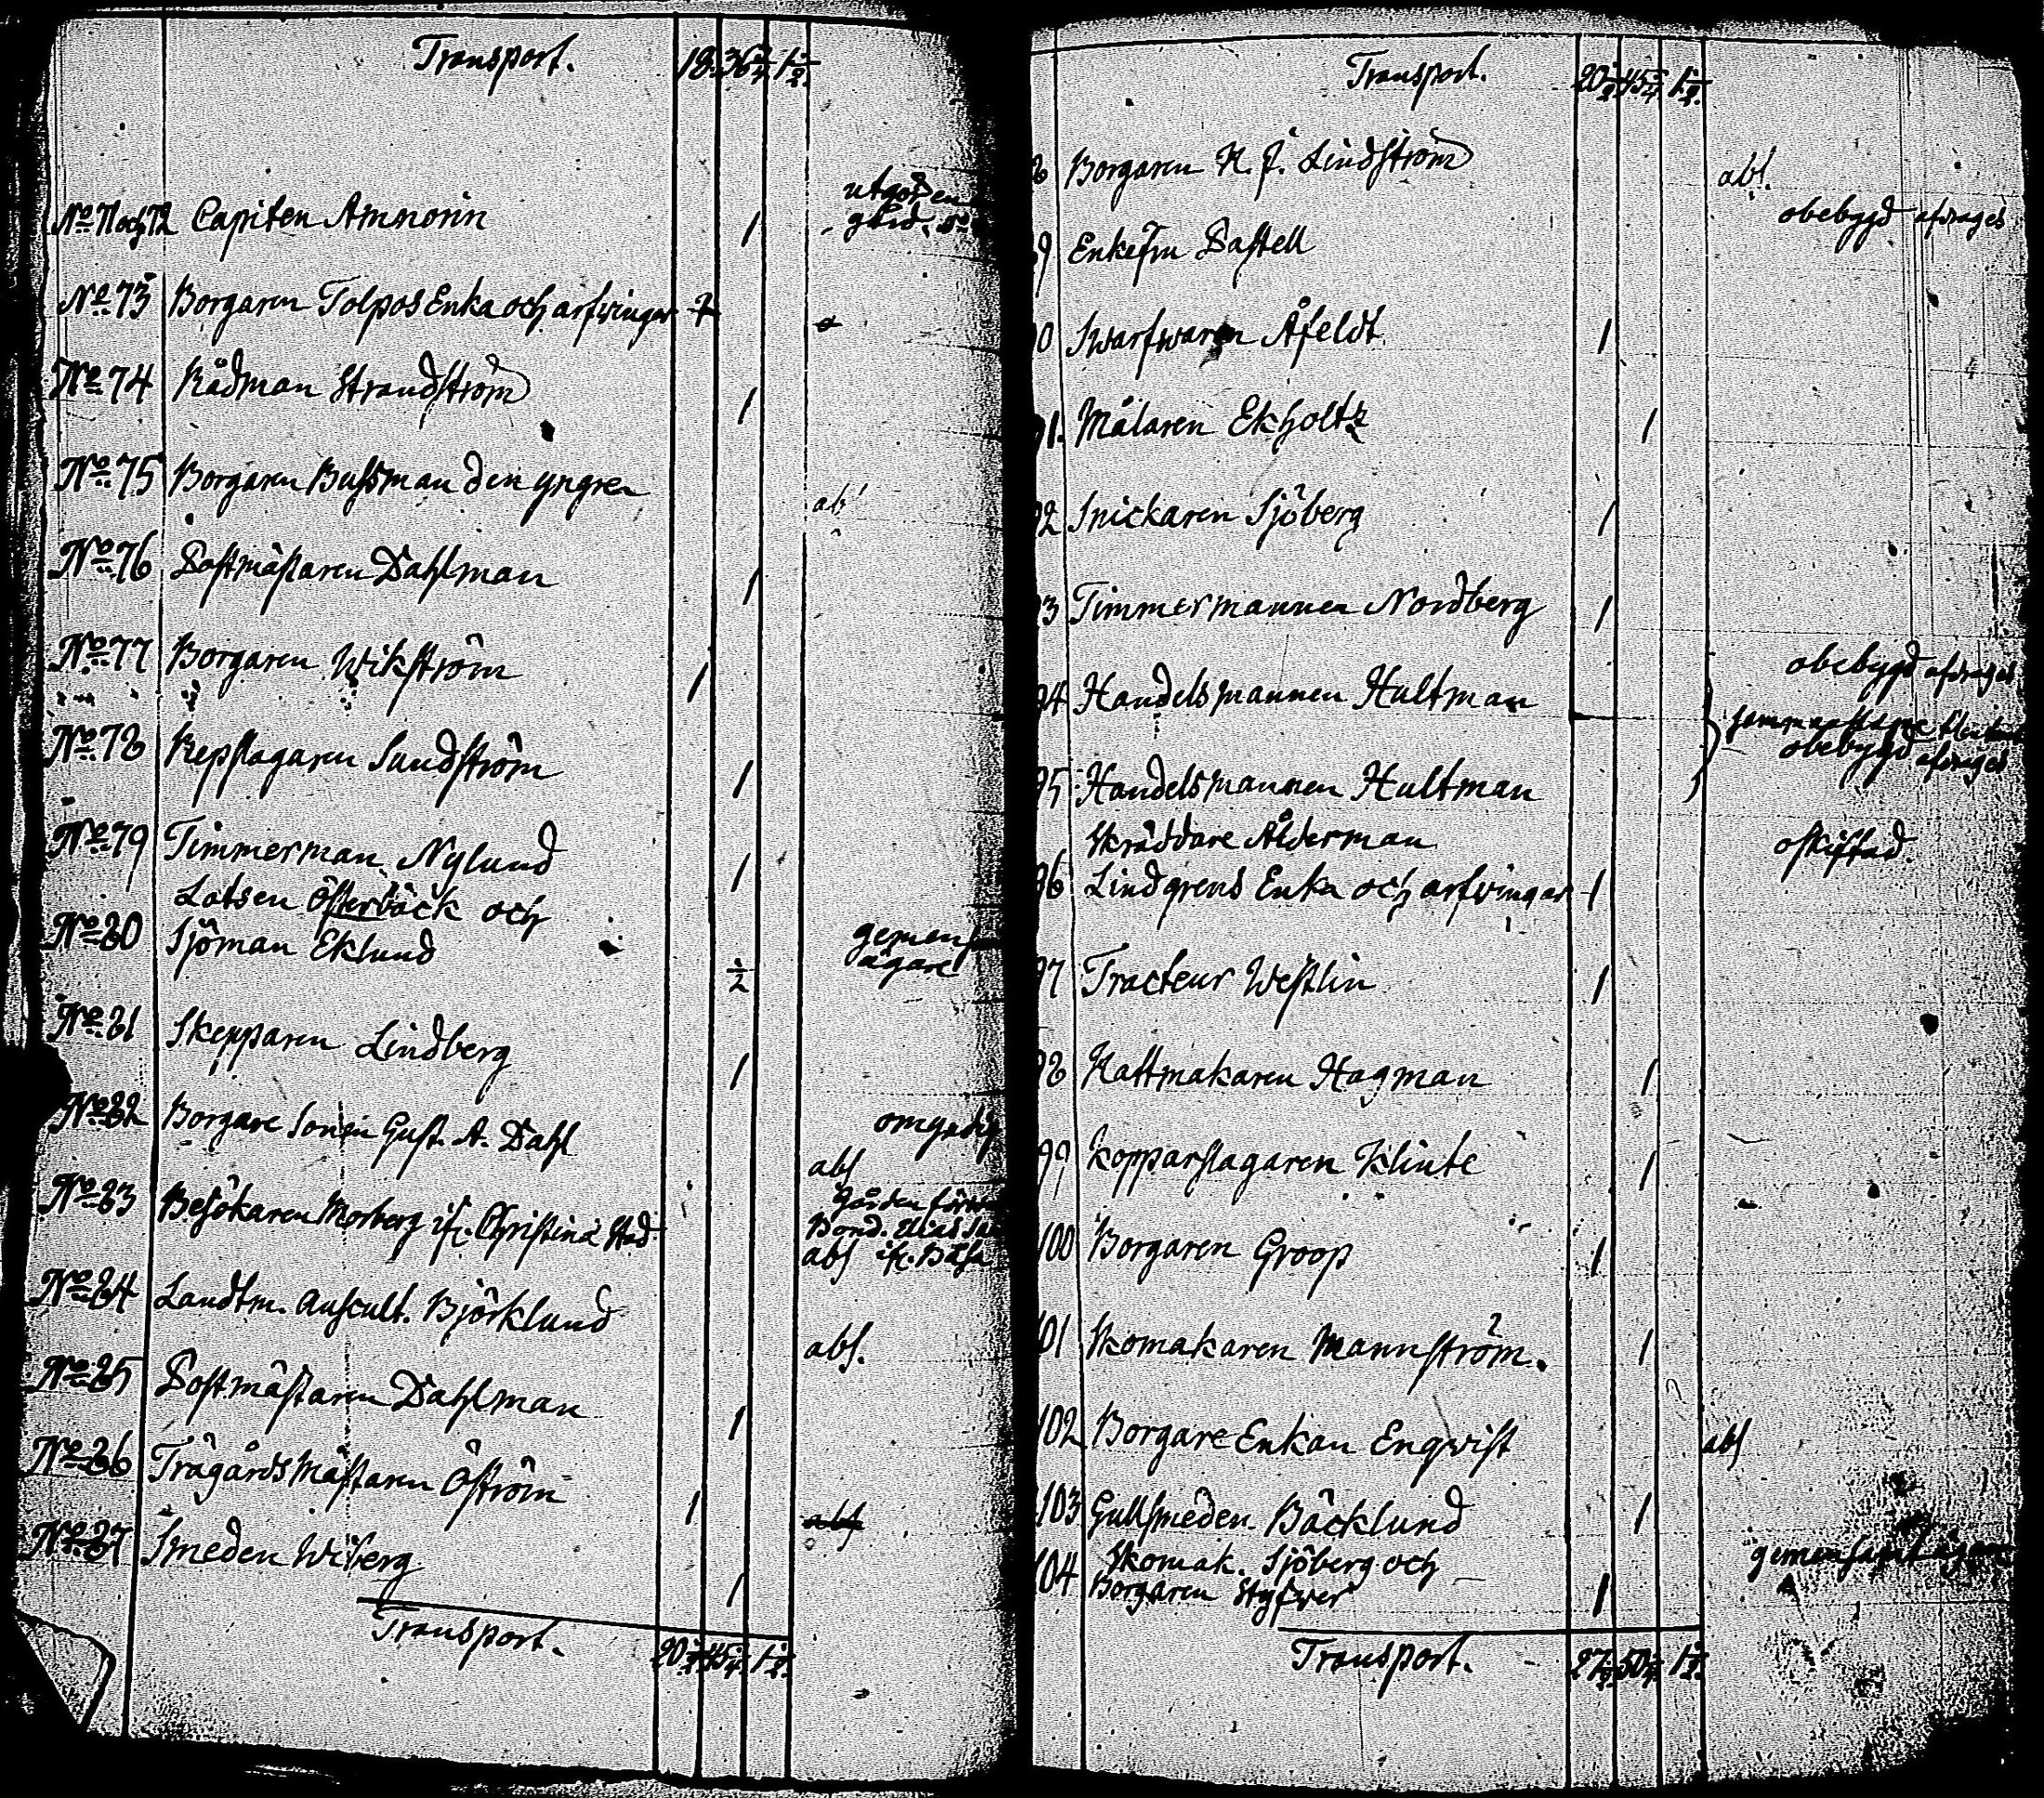 Transport. 18. 36 3/4 1 1/2.
utgör en
No 71 och 72 Capiten Ammorin 1 gård.
No 73 Borgaren Tolpos Enka och arfvingar
No 74 Rådman Strandström 1
No 75 Borgaren Bussman den yngre abs
No 76 Postmästaren Dahlman 1
No 77 Borgaren Wikström 1
No 78 Repslagaren Sundström 1
No 79 Timmerman Nylund 1
Lotsen Österbäck och
No 80 Sjöman Eklund 1/2 gemens
ägare
No 81 Skepparen Lindberg 1
No 82 Borgare Sonen Gust. A. Dahl omyndig
abs
No 83 Besökaren Morberg i Christinæ Stad Gården förv
Bond. Elias
abs
No 84 Landtm. Auscult. Björklund abs.
No 85 Postmästaren Dahlman 1
No 86 Trägårdsmästaren Öström 1 abs
No 87 Smeden Wiberg 1
Transport. 20 1/2 45 1/4 1 1/2.
Transport. 20 1/2 45 1/4 1 1/2.
8 Borgaren H. J. Lindström abs.
9 Enkefru Pastell obebygd afdrages
0 Swarfwaren Åfeldt 1
91. Målaren Ekholtz 1
92 Snickaren Sjöberg 1
93 Timmermannen Nordberg 1
94 Handelsmannen Hultman obebygd afdrages
95 Handelsmannen Hultman obebygd afdrages
Skräddare Ålderman oskiftad.
96 Lindgrens Enka och arfvingar 1
97 Tracteur Westlin 1
98 Hattmakaren Hagman 1
99 Kopparslagaren Klinte 1
100 Borgaren Groop 1
101 Skomakaren Mannström. 1
102 Borgare Enkan Enqvist abs
103 Gullsmeden Bäcklund 1
Skomak. Sjöberg och
104 Borgaren Styfwer 1
Transport. 27 1/2 50 1/4 1 1/2.